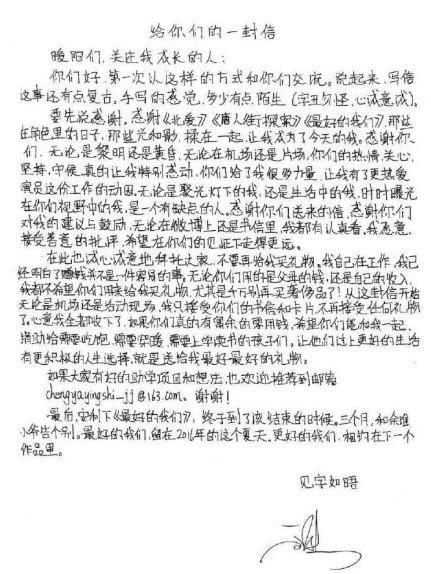 给你们的一封信
暖阳们,关注我成长的人:
你们好,第一次以这样的方式和你们交流。说起来,写信
这事还有点复古。手写的感觉,多少有点陌生(字丑勿怪,心诚意诚)。
要先说感谢,感谢《北爱》《唐人街探案》《最好的我们》,那些
在角色里的日子,那些光和影,揉在一起,让我成为了今天的我。感谢你
们,无论是黎明还是黄昏,无论在机场还是片场,你们的热情、关心、
坚持、守候,真的让我特别感动,你们给了我很多力量,让我有了更热爱
演员这份工作的动因,无论是聚光灯下的我,还是生活中的我,时时曝光
在你们视野中的我,是一个有缺点的人。感谢你们送来的信,感谢你们
对我的建议与鼓励,无论在微博上还是书信里,我都有认真看,我愿意
接受善意的批评,希望在你们的见证下走得更远。
在此也诚心诚意地拜托大家,不要再给我买礼物。我自己在工作,我已
经明白了赚钱并不是一件容易的事,无论你们用的是父母的钱,还是自己的收入,
我都不希望你们用来给我买礼物,尤其是千万别再买奢侈品了!从这封信开始
无论是机场还是活动现场,我只接受你们的书信和卡片,不再接受任何礼物
了。心意我全都收下了,如果你们真的有富余的零用钱,希望你们能和我一起,
捐助给需要吃饱,需要穿暖,需要上学读书的孩子们。让他们过上更好的生活
有更积极的人生选择,就是送给我最好最好的礼物。
如果大家有好的助学项目和想法,也欢迎推荐到邮箱
chengyayingshi_jj@163.com、谢谢!
最后,定制下《最好的我们》,终于到了该结束的时候。三个月,和余淮
小爷告个别。最好的我们,留在2016年的这个夏天。更好的我们,相约在下一个
作品里。
见字如晤